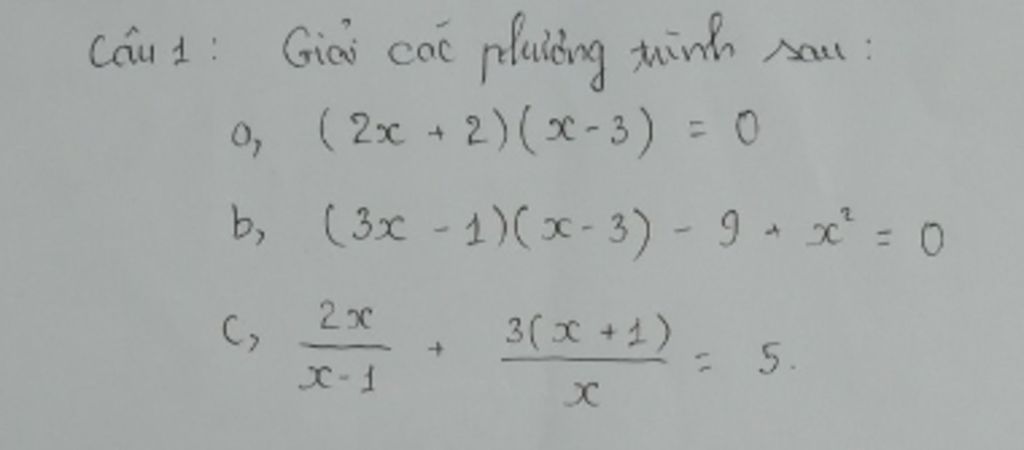 Câu 1 : Giải các phương trình sau :
a, (2x + 2)(x - 3) = 0
b, (3x - 1)(x - 3) - 9 + x² = 0
c, 2x/(x - 1) + 3(x + 1)/x = 5.